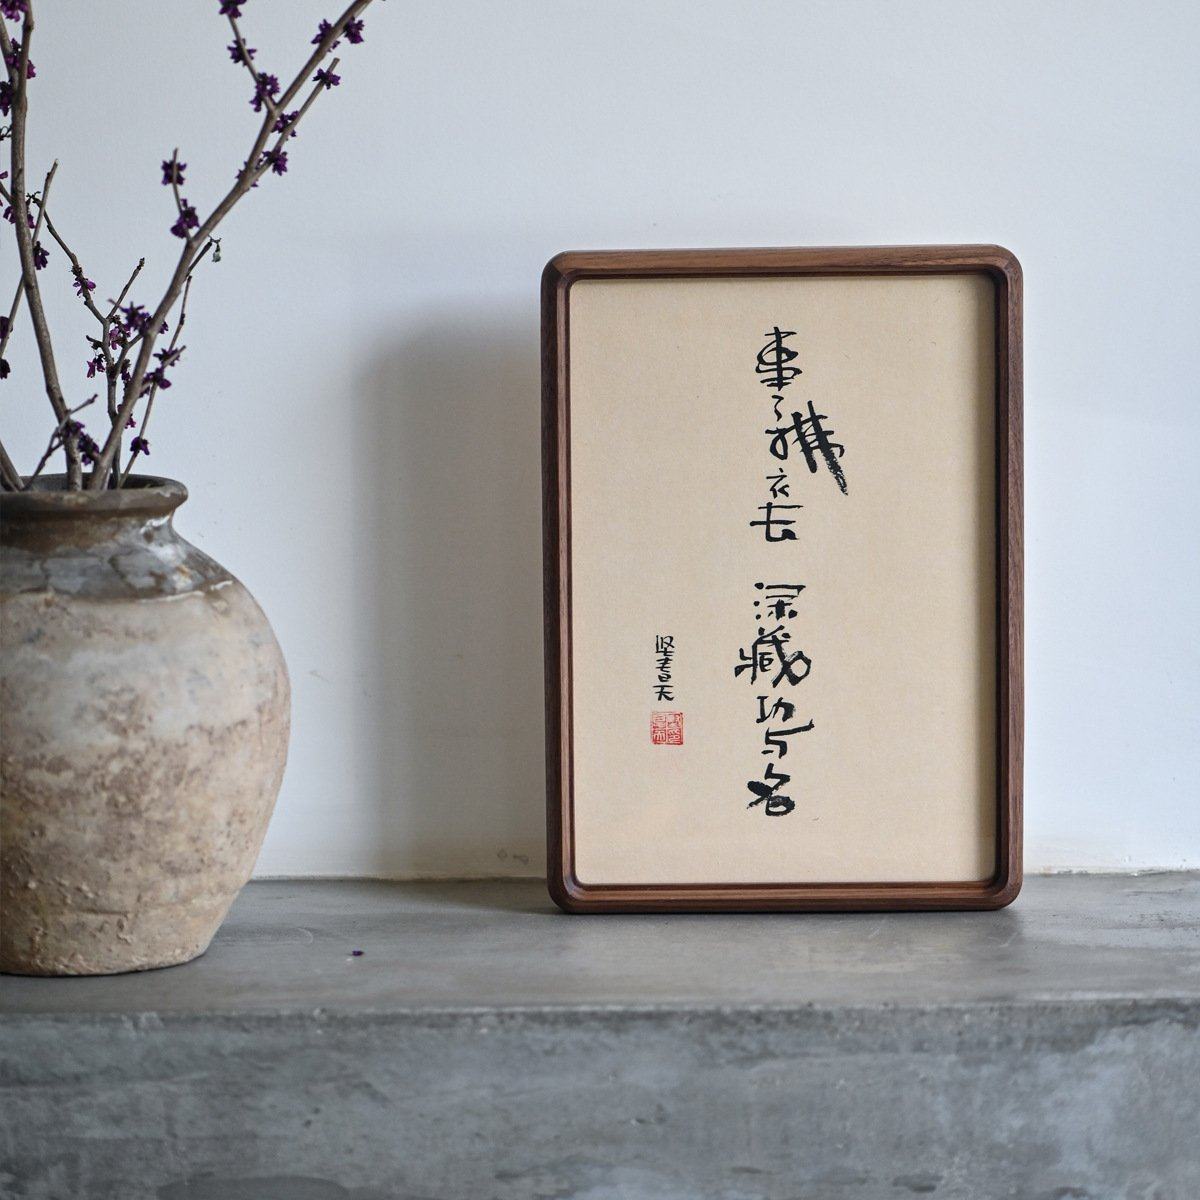 事了拂衣去 深藏功与名